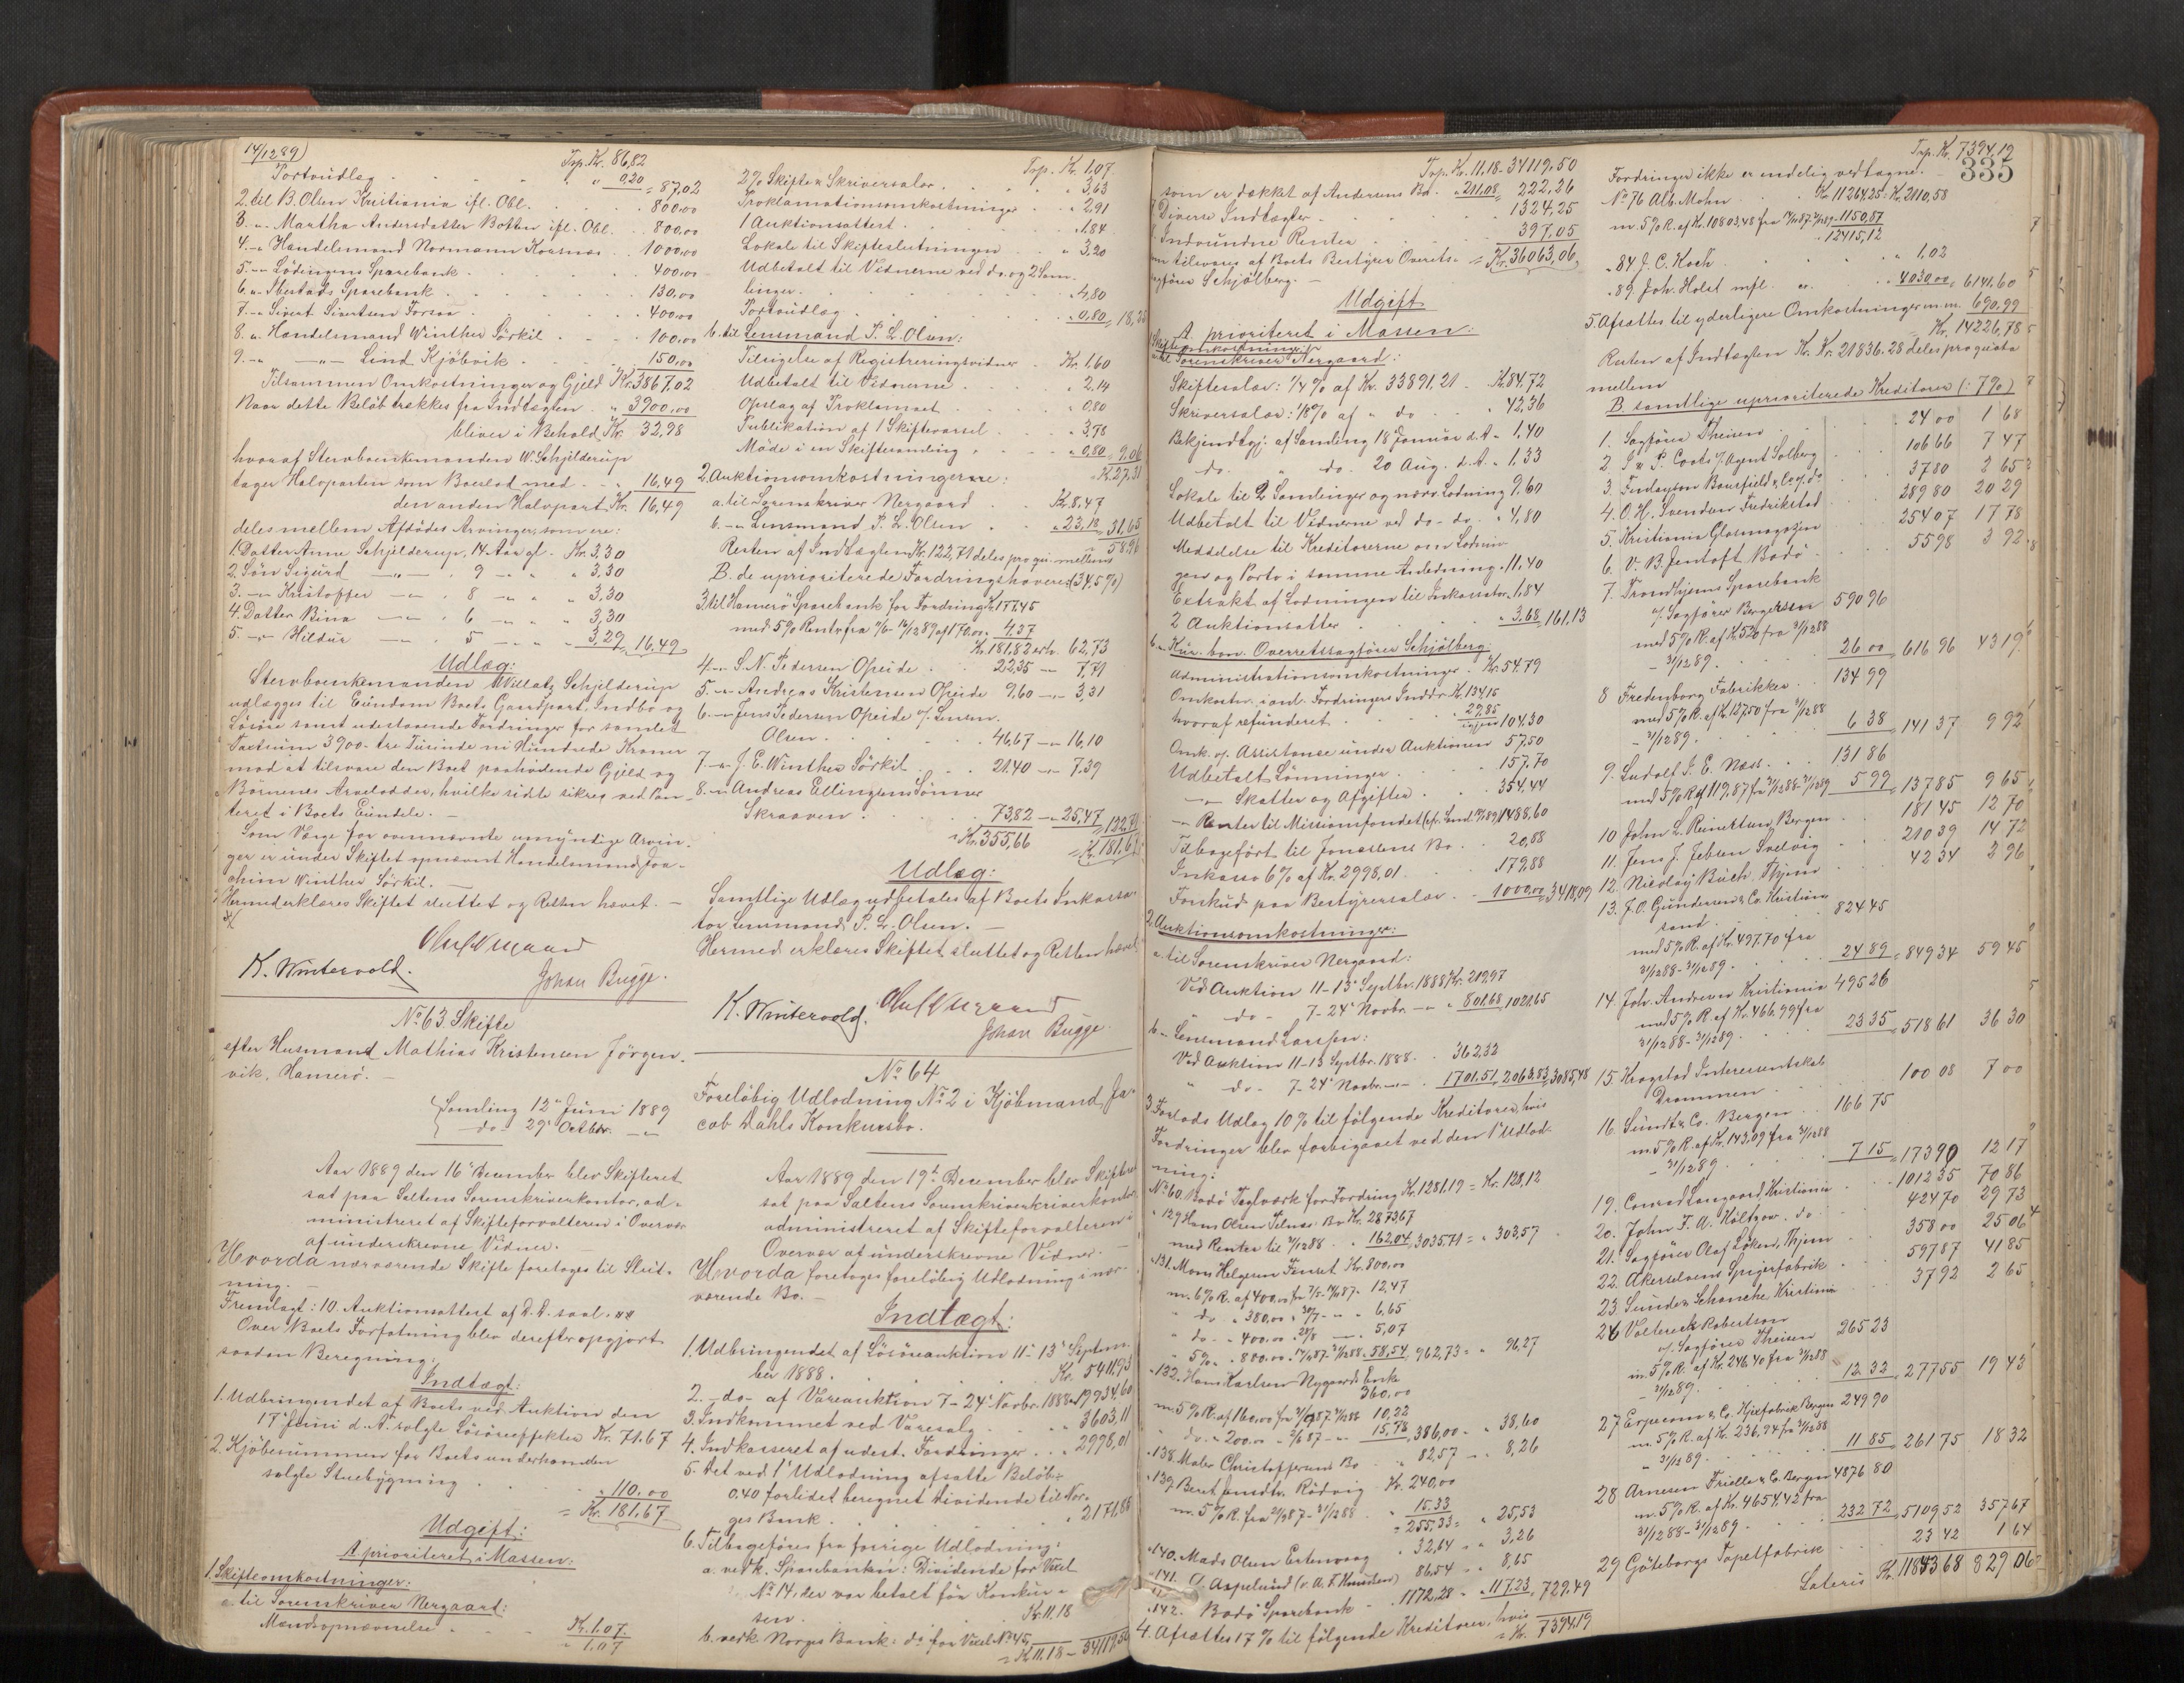 14/12 89)
Trp. Kr. 86,82
Portoudlæg " 0,20 = 87,02
2. til B. Olsen Kristiania ifl. Obl. 800,00
3. -"- Martha Andersdatter Botten ifl. Obl. 800,00
4. -"- Handelsmand Normann Korsnæs 1000,00
5. -"- Lödingens Sparebank 400,00
6. -"- Ibestads Sparebank 130,00
7. -"- Sivert Sivertsen Forsaa 400,00
8. -"- Handelsmand Winther Sörkil 100,00
9. -"- -"- Lind Kjöbvik 150,00
Tilsammen Omkostninger og Gjæld Kr. 3867,02
Naar dette Belöb trækkes fra Indtægten " 3900,00
bliver i Behold Kr. 32,98
hvoraf Stervboenkemanden W. Schjelderup
tager Halvparten som Boeslod med 16,49
den anden Halvpart Kr. 16,49
deles mellem Afdödes Arvinger, som ere:
1. Datter Anne Schjelderup, 14 Aar gl. Kr. 3,30
2. Sön Sigurd -"- 9 -"- " 3,30
3. -"- Kristoffer -"- 8 -"- " 3,30
4. Datter Rina -"- 6 -"- " 3,30
5. -"- Hildur -"- 5 -"- " 3,29 = 16,49
Udlæg:
Stervboenkemanden Willatz Schjelderup
udlægges til Eiendom Boets Gaardpart, Indbo og
Lösöre samt udestaaende Fordringer for samlet
Taxtsum 3900 - tre Tusinde ni Hundrede Kroner
mod at tilsvare den Boet paahvilende Gjæld og
Börnenes Arvelodder, hvilke sidste sikres ved Pan-
teret i Boets Eiendele. -
Som Værge for ovennævnte umyndige Arvin-
ger er under Skiftet opnævnt Handelsmand Joa-
chim Winther Sörkil. -
Hermed erklæres Skiftet sluttet og Retten hævet. -
K. Wintervold.
Johan Bugge.
No. 63. Skifte
efter Husmand Mathias Kristensen Jörgen-
vik, Hamerö. -
Samling 12te Juni 1889
do 29' Octbr. -"-
Aar 1889 den 16' December blev Skifteret
sat paa Saltens Sorenskriverkontor, ad-
ministreret af Skifteforvalteren i Overvær
af underskrevne Vidner. -
Hvorda nærværende Skifte foretoges til Slut-
ning. -
Fremlagt: 10. Auktionsattest af D.D. saal.
Over Boets Forfatning blev derefter opgjort
saadan Beregning:
Indtægt:
1. Udbringendet af Boets ved Auktion den
17' Juni d. A. solgte Lösöreeffekter Kr. 71.67
2. Kjöbesummen for Boets underhaanden
solgte Stuebygning " 110.00
= Kr. 181.67
Udgift:
A. prioriteret i Massen:
1. Skifteomkostninger:
a. til Sorenskriver Nergaard:
Mændsopnævnelse Kr. 1.07.
" 1.07
Trp. Kr. 1.07.
2% Skifte & Skriversalær " 3,63
Proklamationsomkostninger " 2,91
1 Auktionsattest " 1,84
Lokale til Skifteslutningen " 3,20
Udbetalt til Vidnerne ved do. og 2 Sam-
linger " 4,80
Portoudlæg " 0,80
b. til Lensmand P. L. Olsen:
Tilsigelse af Registreringsvidner Kr. 1,60
Udbetalt til Vidnerne " 2,14
Opslag af Proklamaet " 0,80
Publikation af 1 Skiftevarsel " 3,78
Möde i en Skiftesamling " 0,80 = 9,06
Kr. 27,31
2. Auktionsomkostningerne:
a. til Sorenskriver Nergaard Kr. 8,47
b. -"- Lensmand P. L. Olsen " 23,18 = 31,65
58,96
Resten af Indtægten Kr. 122,71 deles pro qu. mellem
B. de uprioriterede Fordringshavere (34,5%)
3. til Hamerö Sparebank for Fordring Kr. 177.45
med 5% Rente fra 11/6 - 16/12 89 af 170.00 4,37
Kr. 181,82 erh. 62,73
4. -"- S. N. Pedersen Opeide 22,35 -"- 7,71
5. -"- Andreas Kristensen Opeide 9,60 -"- 3,31
6. -"- Jens Pedersen Opeide v/ Lensm.
Olsen 46,67 -"- 16,10
7. -"- J. E. Winther Sörkil 21.40 -"- 7.39
8. -"- Andreas Ellingsens Sönner
Skraaven 73,82 -"- 25,47
Kr. 355,66
Udlæg:
Samtlige Udlæg udbetales af Boets Inkassa-
tor Lensmand P. L. Olsen. -
Hermed erklæres Skiftet sluttet og Retten hævet.
K. Wintervold.
Johan Bugge.
No. 64
Foreløbig Udlodning No. 2 i Kjöbmand Ja-
cob Dahls Konkursbo.
Aar 1889 den 19de December blev Skifteret
sat paa Saltens Sorenskriverkontor
administreret af Skifteforvalteren i
Overvær af underskrevne Vidner. -
Hvorda foretoges foreløbig Udlodning i nær-
værende Bo. -
Indtægt:
1. Udbringendet af Lösöreauktion 11' - 13' Septem-
ber 1888. Kr. 5411,93
2. -do- af Vareauktion 7 - 24' Novbr. 1888 " 19934,60
3. Indkommet ved Varesalg " 3603,11
4. Indkasseret af udest. Fordringer 2998,01
5. Det ved 1' Udlodning afsatte Belöb:
0.40 forlidet beregnet Dividende til Nor-
ges Bank " 2171,88
6. Tilbageföres fra forrige Udlodning:
a. vedk. Sparebanken: Dividende for Vexel
No. 14, der var betalt för Konkur-
sen. Kr. 11.18
b. vedk. Norges Bank: do for Vexel No. 45
= Kr. 11.18 - 34119,50
Trp. Kr. 11.18 - 34119,50
som er dækket af Andersens Bo " 211,08 222,26
Diverse Indtægter 1324,25
Indvundne Renter 397,05
som tilsvares af Boets Bestyrer Overrets- = Kr. 36063,06
sagförer Schjölberg. -
Udgift
A. prioriteret i Massen:
1. Skifteomkostninger:
a. til Sorenskriver Nergaard:
Skiftesalær: 1/4% af Kr. 33891,21 - Kr. 84,72
Skriversalær: 1/8% af " do " 42,36
Bekjendtgj. af Samling 18 Januar d. A. " 1,40
do. " do. 20 Aug. d. A. " 1,33
Lokale til 2 Samlinger og nærv. Lodning 9,60
Udbetalt til Vidnerne ved do - do. " 4,80
Meddelelse til Kreditorerne om Lodnin-
gen og Porto i samme Anledning " 11,40
Extrakt af Lodningen til Inkassator " 1,84
2 Auktionsatter " 3,68 161,13
b. -"- Kur. bon. Overretssagförer Schjölberg
Administrationsomkostninger Kr. 54.79
Omkostn. i anl. Fordringers Inddr. Kr. 134,15
hvoraf refunderet 29,85 104.30
Omk. v/ Assistance under Auktionen 57.50
Udbetalt Lönninger 157,70
-"- Skatter og Afgifter 354.44
-"- Renter til Missionsfondet 1488,60
Tilbageført til Jonassens Bo 20,88
Inkasso 6% af Kr. 2998,01. 179,88
Forskud paa Bestyrersalær 1000,00 = 3418,09
2. Auktionsomkostninger:
a. til Sorenskriver Nergaard:
Ved Auktion 11-13' Septbr. 1888 Kr. 219,97
" do - 7-24' Novbr. -"- " 801,68 1021,65
b. - Lensmand Larssen:
Ved Auktion 11-13 Septbr. 1888 362,32
" do - 7-24' Novbr. -"- 1701,51 2063,83 3085,48
3. Forlods Udlæg 10% til følgende Kreditorer, hvis
Fordringer blev forbigaaet ved den 1' Udlod-
ning:
No. 60. Bodö Teglværk for Fordring Kr. 1281,19 = Kr. 128,12
" 129 Hans Olsen Tilnæs Bo Kr. 2873,67
med Renter til 31/12 88 162,04 3035,71 = " 303,57
" 131. Mons Helgesen Finset Kr. 800,00
m. 6% R. af 400,00 12,47
" do " 380,00 " 6,65
" do " 400.00 " 5,07
" 5% " 800.00 58,54 962,73 = " 96,27
" 132. Hans Karlsen Nygaards Enke
360,00
m. 5% R. af 160,00 10,22
" do. " 200.00 15,78 386,00 = " 38,60
" 138. Maler Christoffersens Bo " 82,57 " 8,26
" 139. Beret Jensdtr. Rödvig Kr. 240,00
m. 5% R. fra 15.33
= 255,33 = " 25,53
" 140. Mads Olsen Estenvaag " 32,64 " 3,26
" 141. O. Aspelund (v. A. F. Knudsen) 86,54 " 8,65
" 142. Bodö Sparebank 1172,28 " 117,23 729,49
4. Afsættes 17% til følgende Kreditorer, hvis
= Kr. 7394,19
Trp. Kr. 7394,19
335
Fordringer ikke er endelig vedtagne.
No. 76 Alb. Mohn Kr. 11264,25 = Kr. 2110,58
m. 5% R. af Kr. 10803,48 1150,87
12415,12
" 84 J. C. Koch " 1,02
" 89 Joh. Holst mfl. 4030,00 = 6141,60
5. Afsættes til yderligere Omkostninger m.m. 690,99
Kr. 14226,78
Resten af Indtægten Kr. 21836.28 deles pro quota
mellem
B. samtlige uprioriterede Kreditorer (: 7%)
1. Sagförer Theisen 24 00 1 68
2. J. & P. Coats v/ Agent Solberg 106 66 7 47
3. Finlayson Bousfield & Co v/ do 37 80 2 65
4. O. H. Svendsen Fredrikstad 289 80 20 29
5. Kristiania Glasmagazin 254 07 17 78
6. V. B. Jentoft Bodö 55 98 3 92
7. Trondhjems Sparebank
v/ Sagförer Bergersen 590 96
med 5% R. af Kr. 520 fra 31/12 88
- 31/12 89. 26 00 616 96 43 19
8 Fredenborg Fabrikker 134 99
med 5% R. af Kr. 127,50 fra 31/12 88
- 31/12 89. 6 38 141 37 9 92
9. Ludolf J. E. Næss 131 86
med 5% R. af 119,87 fra 31/12 88 - 31/12 89 5 99 137 85 9 65
10 John L. Reinertsen, Bergen 181 45 12 70
11. Jens J. Jebsen Salvig 210 39 14 72
12. Nicolay Buch. Thjem 42 34 2 96
13. J. O. Gundersen & Co. Kristian-
sand 824 45
med 5% R. af Kr. 497.70 fra
31/12 88 - 31/12 89. 24 89 849 34 59 45
14. Joh. Andresen Kristiania 495 26
med 5% R. af Kr. 466.99 fra
31/12 88 - 31/12 89. 23 35 518 61 36 30
15 Krogstad Interessentskab
Drammen 100 08 7 00
16. Sundt & Co. Bergen 166 75
m. 5% R. af Kr. 143,09 fra 31/12 88
- 31/12 89. 7 15 173 90 12 17
19. Conrad Langaard, Kristiania 1012 35 70 86
20. John F. A. Höltzow. do. 424 70 29 73
21. Sagförer Olaf Löken, Thjem 358 00 25 06
22. Akerselvens Spigerfabrik 597 87 41 85
23. Sundes Schancke Kristiania 37 92 2 65
26 Valtereck Robertson
v/ Sagförer Theisen 265 23
m. 5% R. af Kr. 246.40 fra 31/12 88
- 31/12 89. 12 32 277 55 19 43
27 Espesens & Co. Hjulfabrik Bergen 249 90
m. 5% R. af Kr. 236,94 fra 31/12 88
" 31/12 89. 11 85 261 75 18 32
28 Arnesen Frielle & Co. Bergen 4876 80
m. 5% R. af Kr. 4654,42 fra
31/12 88 - 31/12 89. 232 72 5109 52 357 67
29 Göteborgs Tapetfabrik 23 42 1 64
Lateris Kr. 11843 68 829 06